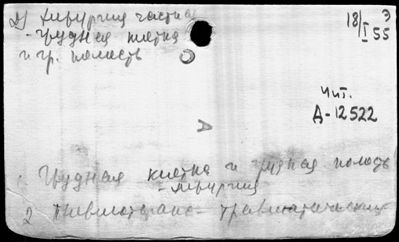 2) хирургия частная
- грудная клетка
и гр. полость
18/I 55
Э
Чит.
А-12522
А
. Грудная клетка и грудная полость
- хирургия
2 Пневмоторакс - травматический